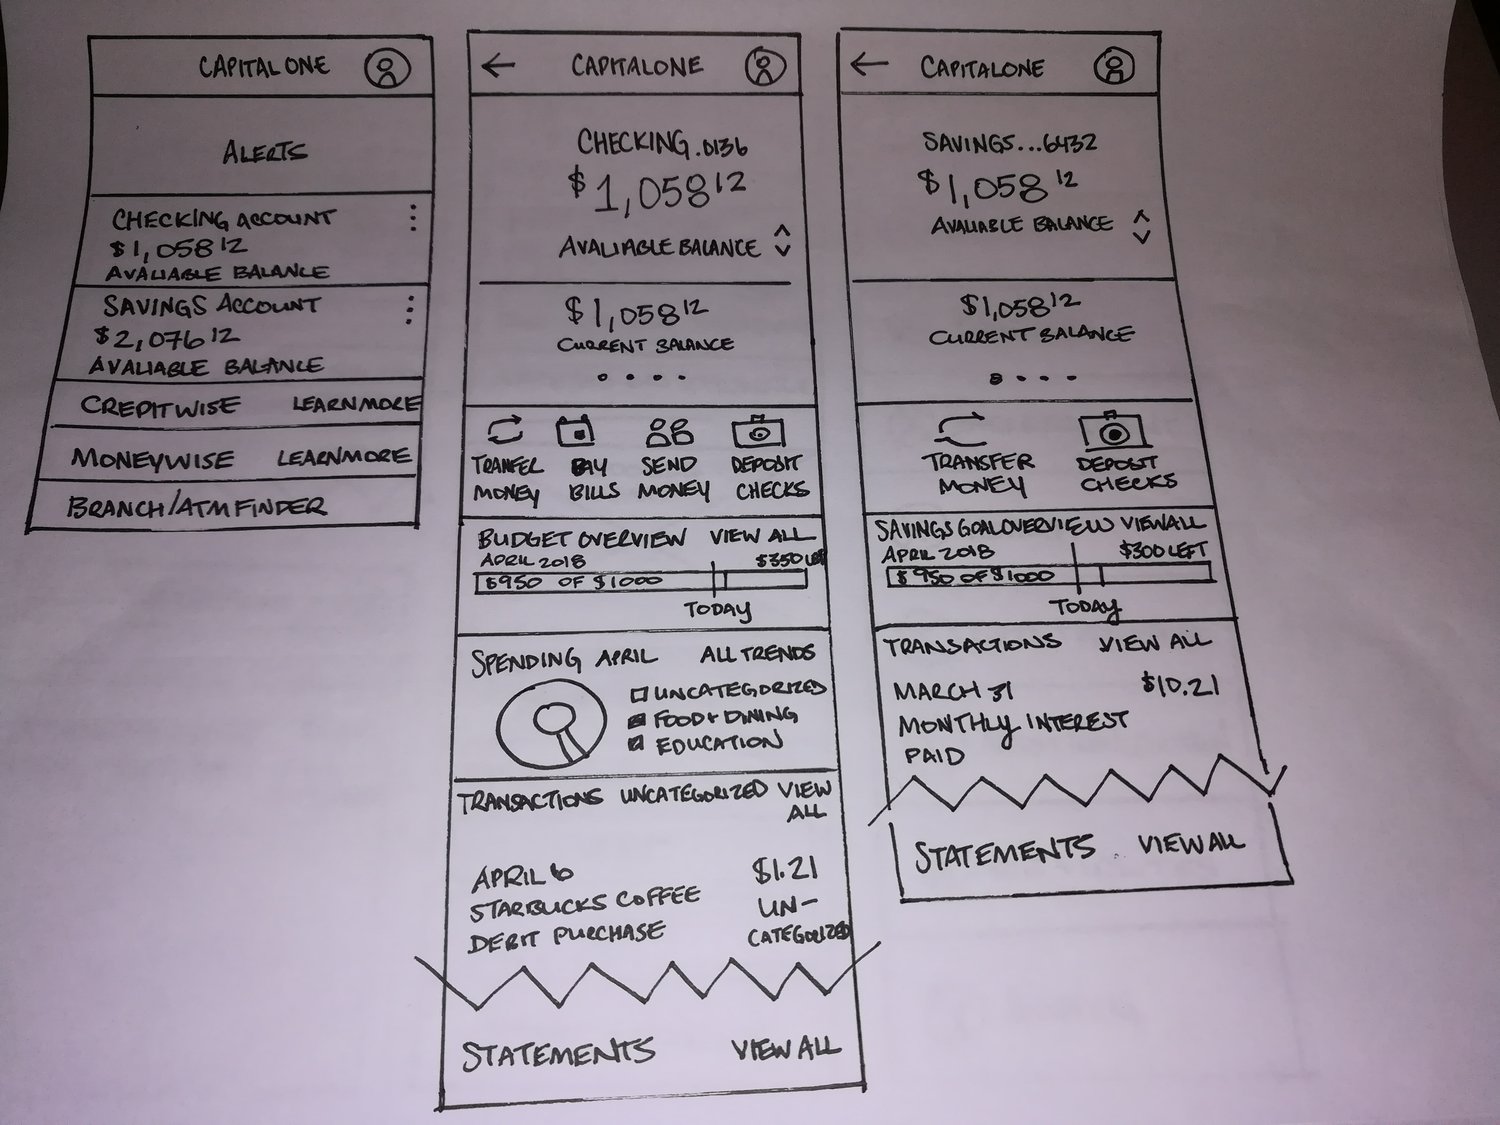 CAPITAL ONE
ALERTS
CHECKING ACCOUNT
$1,058 12
AVALIABLE BALANCE
SAVINGS ACCOUNT
$2,076 12
AVALIABLE BALANCE
CREDITWISE LEARN MORE
MONEYWISE LEARN MORE
BRANCH/ATM FINDER
CAPITALONE
CHECKING.0136
$1,058 12
AVALIABLE BALANCE
$1,058 12
CURRENT BALANCE
TRANFER PAY SEND DEPOSIT
MONEY BILLS MONEY CHECKS
BUDGET OVERVIEW VIEW ALL
APRIL 2018 $350 LEFT
$950 OF $1000
TODAY
SPENDING APRIL ALL TRENDS
UNCATEGORIZED
FOOD + DINING
EDUCATION
TRANSACTIONS UNCATEGORIZED VIEW
ALL
APRIL 6 $1.21
STARBUCKS COFFEE UN-
DEBIT PURCHASE CATEGORIZED
STATEMENTS VIEW ALL
CAPITALONE
SAVINGS...6432
$1,058 12
AVALIABLE BALANCE
$1,058 12
CURRENT BALANCE
TRANSFER DEPOSIT
MONEY CHECKS
SAVINGS GOAL OVERVIEW VIEW ALL
APRIL 2018 $300 LEFT
$950 OF $1000
TODAY
TRANSACTIONS VIEW ALL
MARCH 31 $10.21
MONTHLY INTEREST
PAID
STATEMENTS VIEW ALL